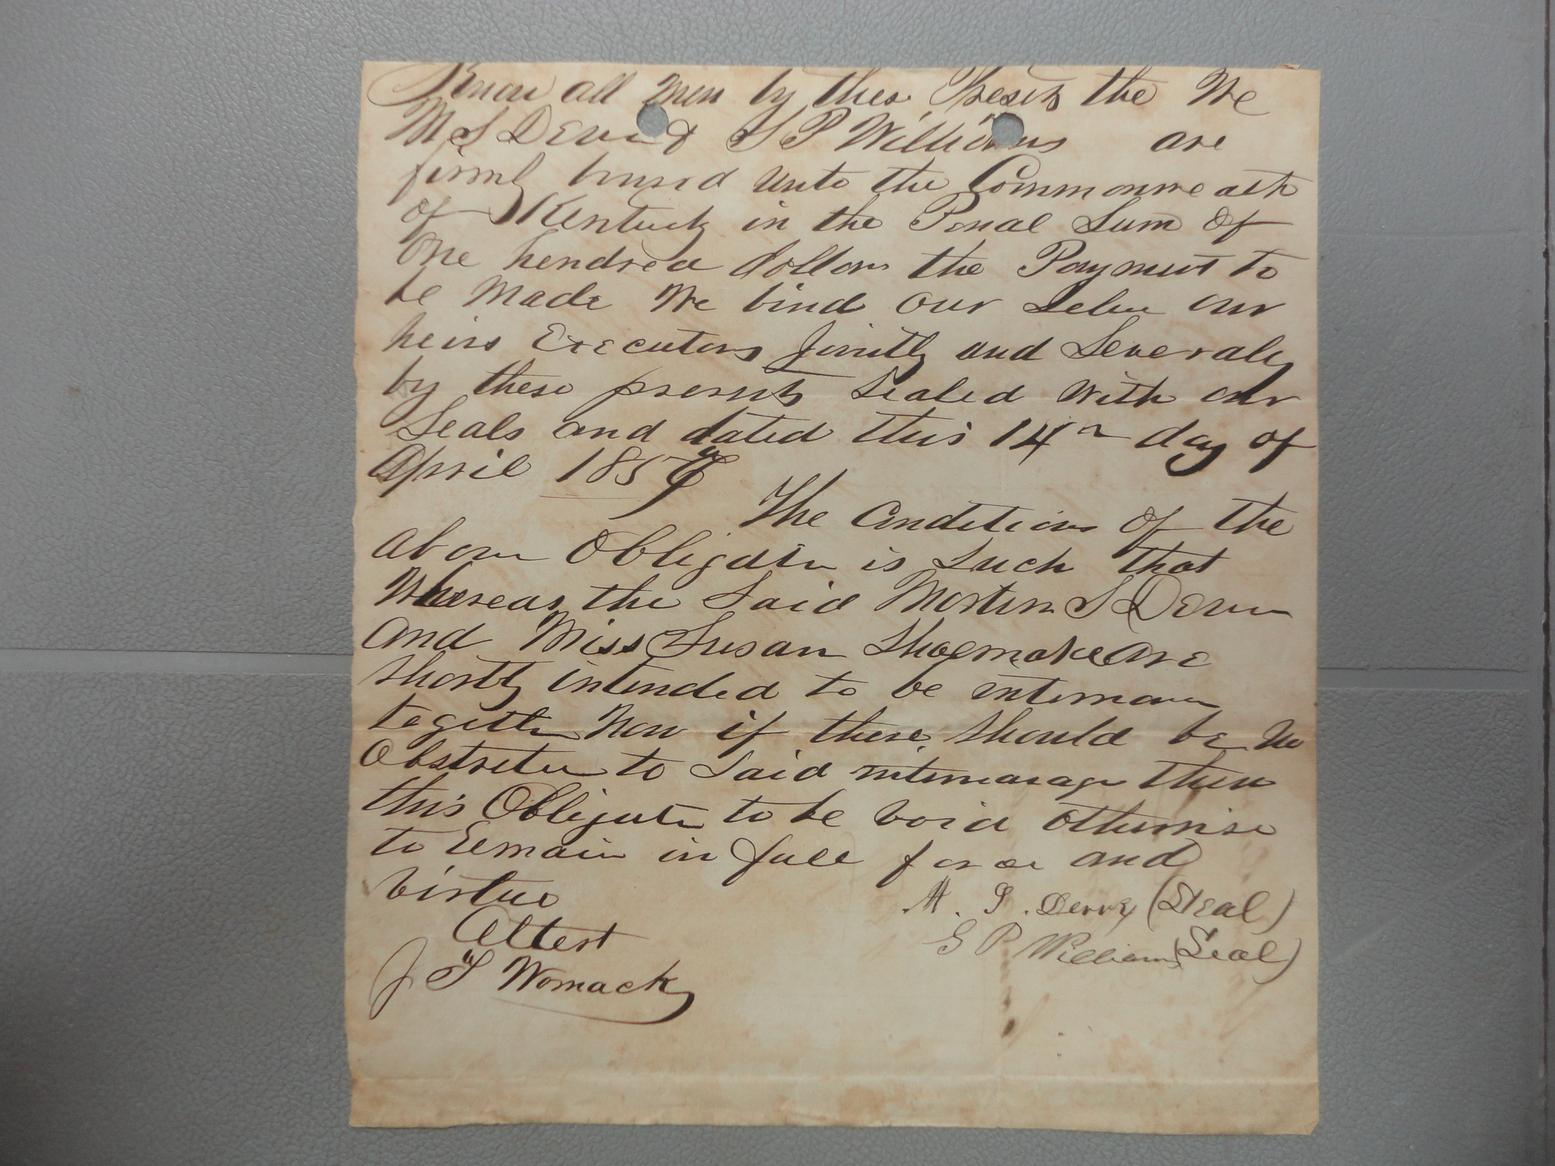 Know all Men by thes Presets the We
M S Devin & G P Williams are
firmly bound unto the Commonweath
of Kentucky in the Penal Sum of
One hendred dollars the Payment to
be Made We bind our Selvs our
heirs Executors Jointly and Severaly
by these presents Sealed with our
Seals and dated this 14th day of
April 1857
The Conditions Of the
above Obligatin is Such that
Whereas the Said Morten S
and Miss Susan Shoemake are
Shortly intended to be intermarr
togethr Now if there Should be no
Obstretin to Said intermarage then
this Obligatn to be void otherwise
to Remain in full force and
virtue
M. S. Derry (Seal)
Attest
G P Williams (Seal)
J T Womack